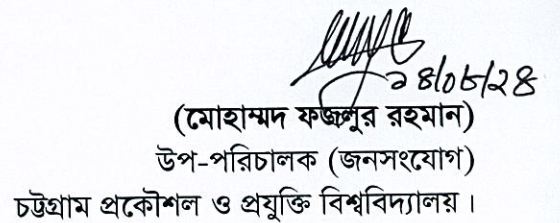 (মোহাম্মদ ফজলুর রহমান)
উপ-পরিচালক (জনসংযোগ)
চট্টগ্রাম প্রকৌশল ও প্রযুক্তি বিশ্ববিদ্যালয়।